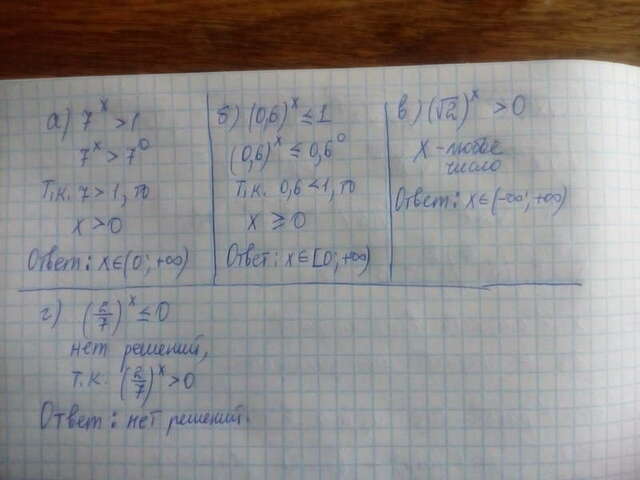 а) 7^x > 1
7^x > 7^0
т.к. 7 > 1, то
x > 0
Ответ: x ∈ (0; +∞)
б) (0,6)^x ≤ 1
(0,6)^x ≤ 0,6^0
т.к. 0,6 < 1, то
x ≥ 0
Ответ: x ∈ [0; +∞)
в) (√2)^x > 0
X - любое
число
Ответ: x ∈ (-∞; +∞)
г) (2/7)^x ≤ 0
нет решений,
т.к. (2/7)^x > 0
Ответ: нет решений.